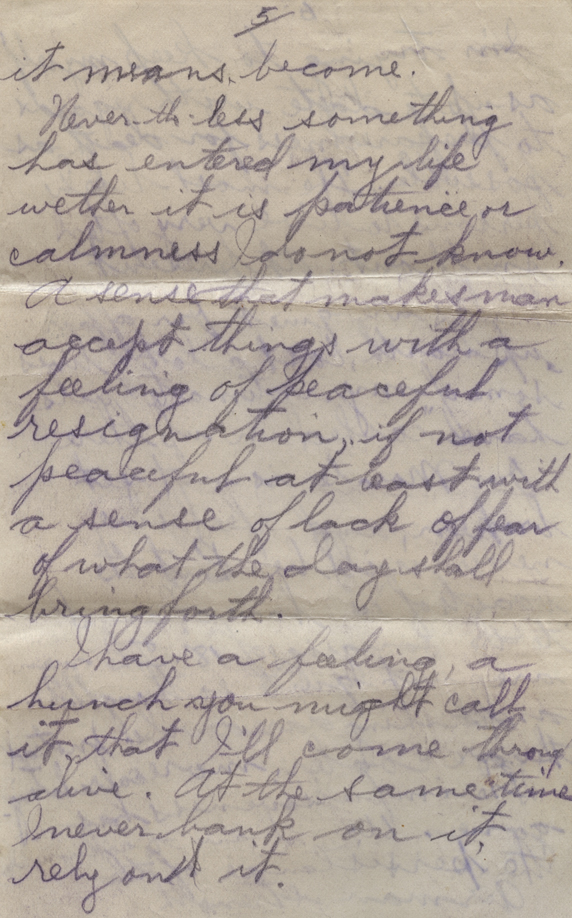 5
it means, become.
Never-th-less something
has entered my life
wether it is patience or
calmness I do not know.
A sense that makes man
accept things with a
feeling of peaceful
resignation, if not
peaceful at least with
a sense of lack of fear
of what the day shall
bring forth.
I have a feeling, a
hunch you might call
it, that I'll come throug
alive. At the same time
I never bank on it,
rely on it.